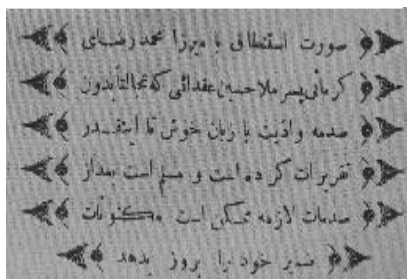 صورت استنطاق با میرزا محمد رضای
کرمانی پسر ملا حسین عقدائی که عجالتاً بدون
صدمه و اذیت با زبان خوش تا اینقدر
تقریرات کرده است و مسلم است بعداز
صدمات لازمه ممکن است مکنونات
ضمیر خود را بروز بدهد